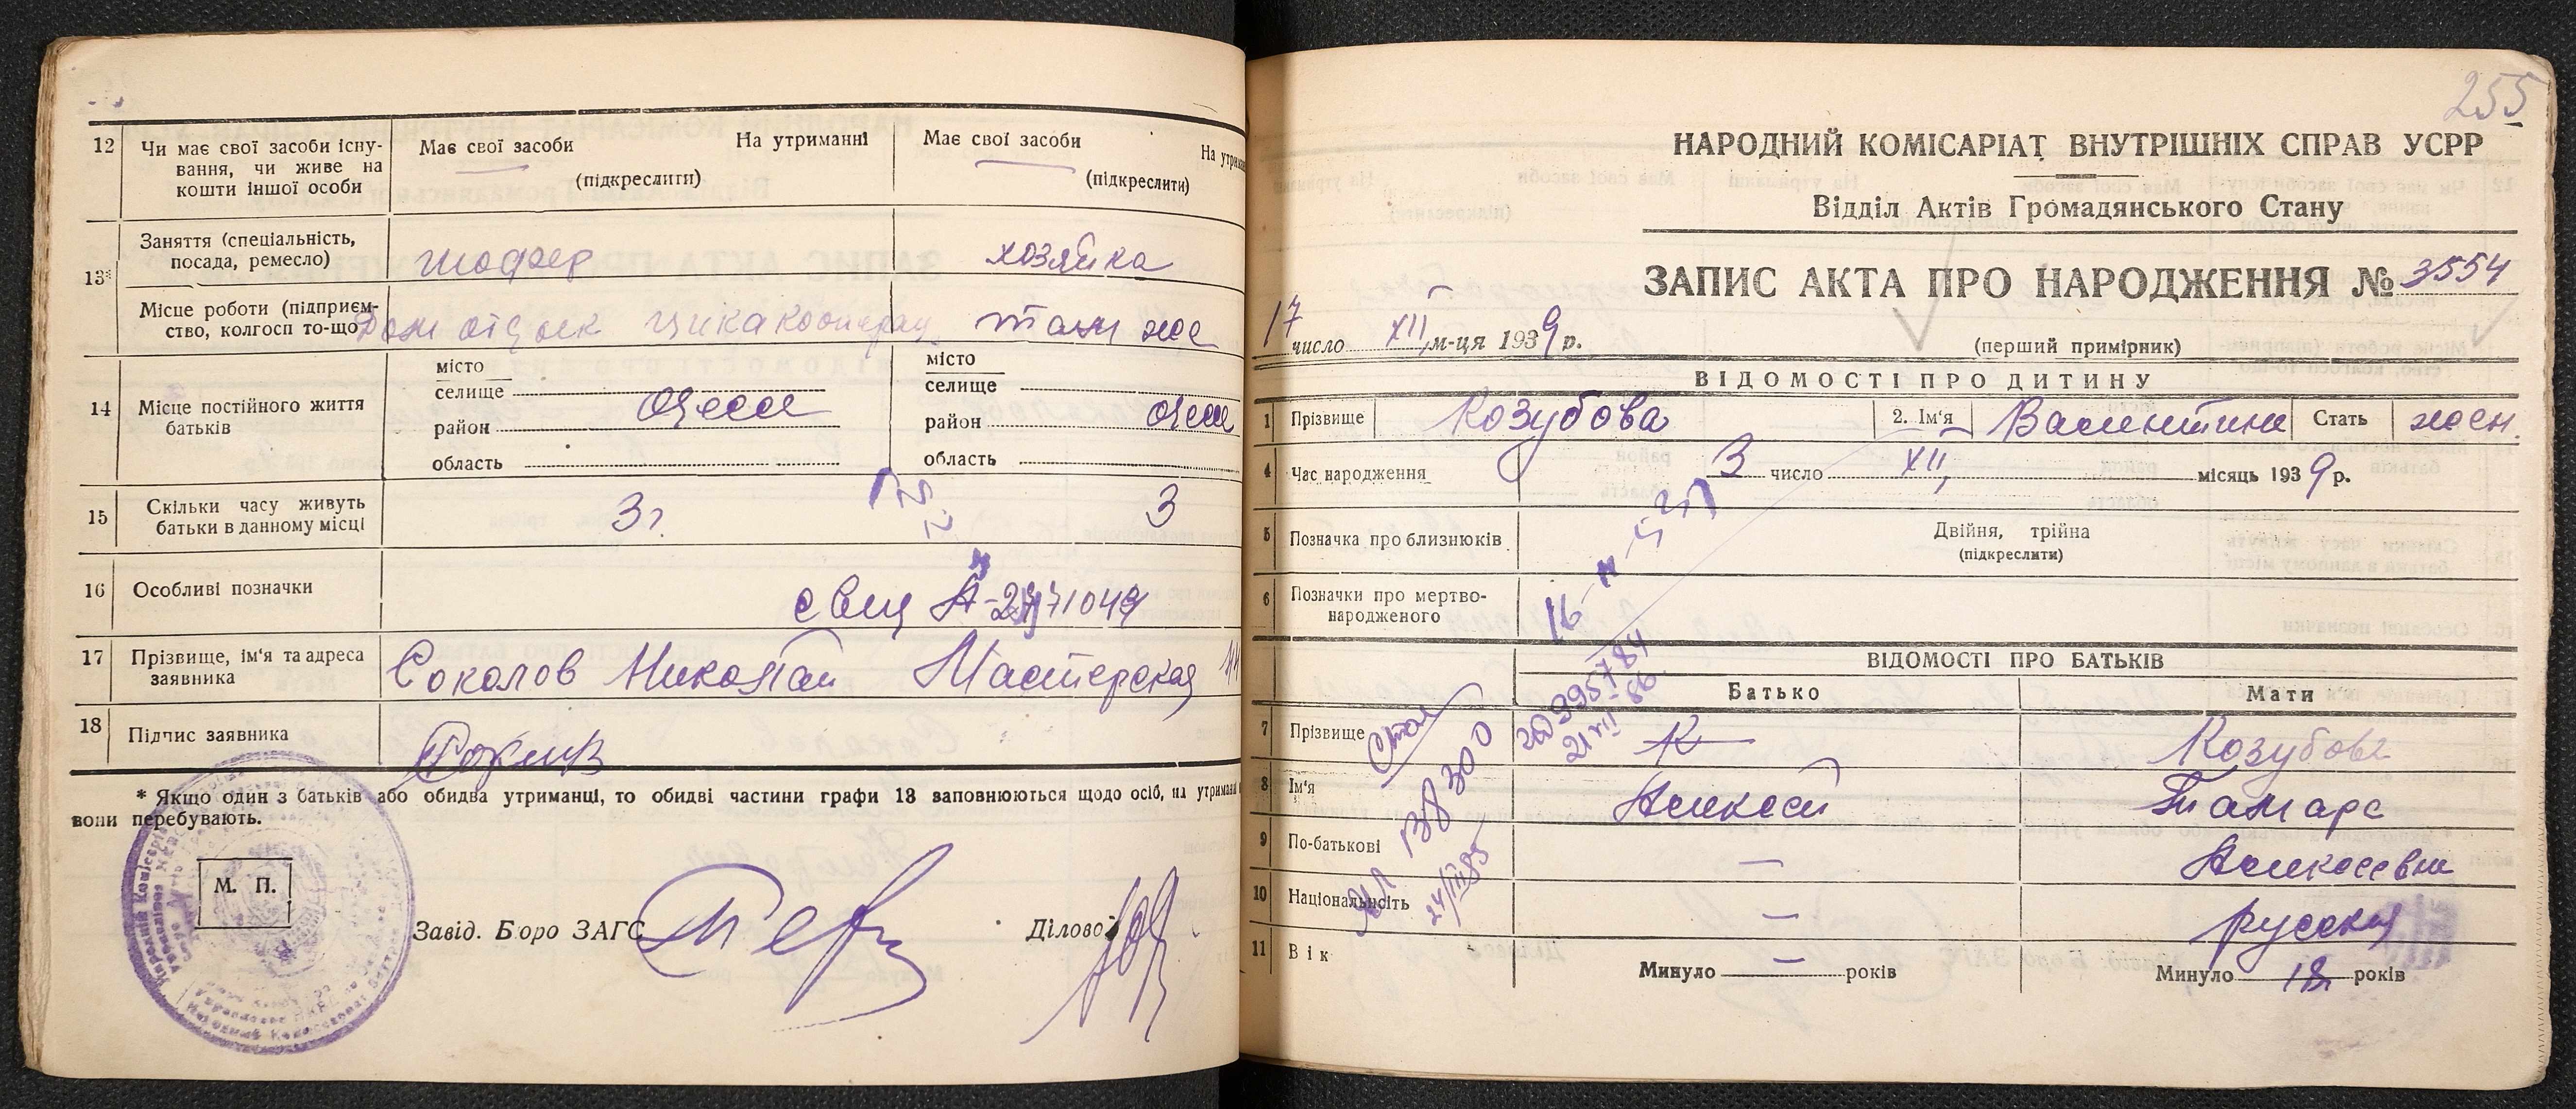 12 Чи має свої засоби існу-
вання, чи живе на
кошти іншої особи
Має свої засоби На утриманні
(підкреслити)
Має свої засоби На утриман
(підкреслити)
13* Заняття (спеціальність,
посада, ремесло)
шофер хозяйка
Місце роботи (підприєм-
ство, колгосп то-що)
там же
14 Місце постійного життя
батьків
місто
селище
район Одесса
область
місто
селище
район Одесса
область
15 Скільки часу живуть
батьки в данному місці
3 г 3
16 Особливі позначки
17 Прізвище, ім'я та адреса
заявника
Соколов Николай Мастерская 44
18 Підпис заявника
* Якщо один з батьків або обидва утриманці, то обидві частини графи 13 заповнюються щодо осіб, на утриманні
вони перебувають.
М. П.
Завід. Бюро ЗАГС
Діловод
255
НАРОДНИЙ КОМІСАРІАТ ВНУТРІШНІХ СПРАВ УСРР
Відділ Актів Громадянського Стану
ЗАПИС АКТА ПРО НАРОДЖЕННЯ № 3554
17 число XII м-ця 1939 р.
(перший примірник)
ВІДОМОСТІ ПРО ДИТИНУ
1 Прізвище Козубова 2. Ім'я Валентина Стать жен.
4 Час народження 3 число XII місяць 1939 р.
5 Позначка про близнюків Двійня, трійна
(підкреслити)
6 Позначки про мертво-
народженого
ВІДОМОСТІ ПРО БАТЬКІВ
Батько Мати
7 Прізвище К Козубова
8 Ім'я Алексей Тамара
9 По-батькові — Алексеевна
10 Національність — русская
11 Вік Минуло — років Минуло 18 років
138300